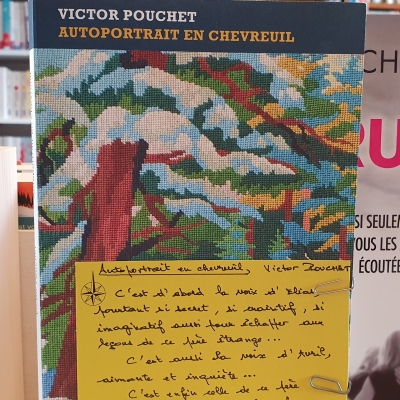 VICTOR POUCHET
AUTOPORTRAIT EN CHEVREUIL
CH
RU
SI SEULEM
TOUS LES
ÉCOUTÉE
Autoportrait en chevreuil, Victor POUCHET
C'est d'abord la voix d'Elias
pourtant si secret, si craintif, si
imaginatif aussi pour échapper aux
leçons de ce père étrange...
C'est aussi la voix d'Avril,
aimante et inquiète...
C'est enfin celle de ce père